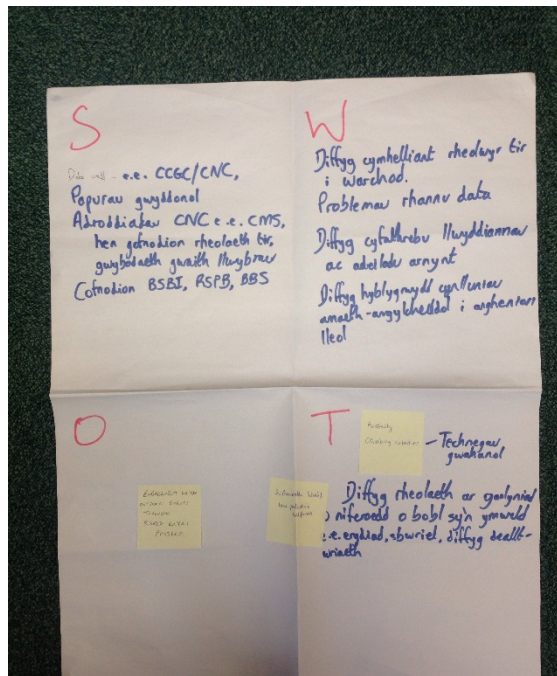 S
Data well - e.e. CCGC/CNC,
Papurau gwyddonol
Adroddiadau CNC e.e. CMS,
hen gofnodion rheolaeth tir,
gwybodaeth gwaith llwybrau
Cofnodion BSBI, RSPB, BBS
W
Diffyg cymhelliant rheolwyr tir
i warchod.
Problemau rhannu data
Diffyg cyfathrebu llwyddiannau
ac adeiladu arnynt
Diffyg hyblygrwydd cynlluniau
amaeth-amgylcheddol i anghenion
lleol
O
PROJECT
T
Climbing
- Technegau
gwahanol
Diffyg rheolaeth ar ganlyniad
o niferoedd o bobl sy'n ymweld
e.e. erydiad, sbwriel, diffyg deallt-
wriaeth